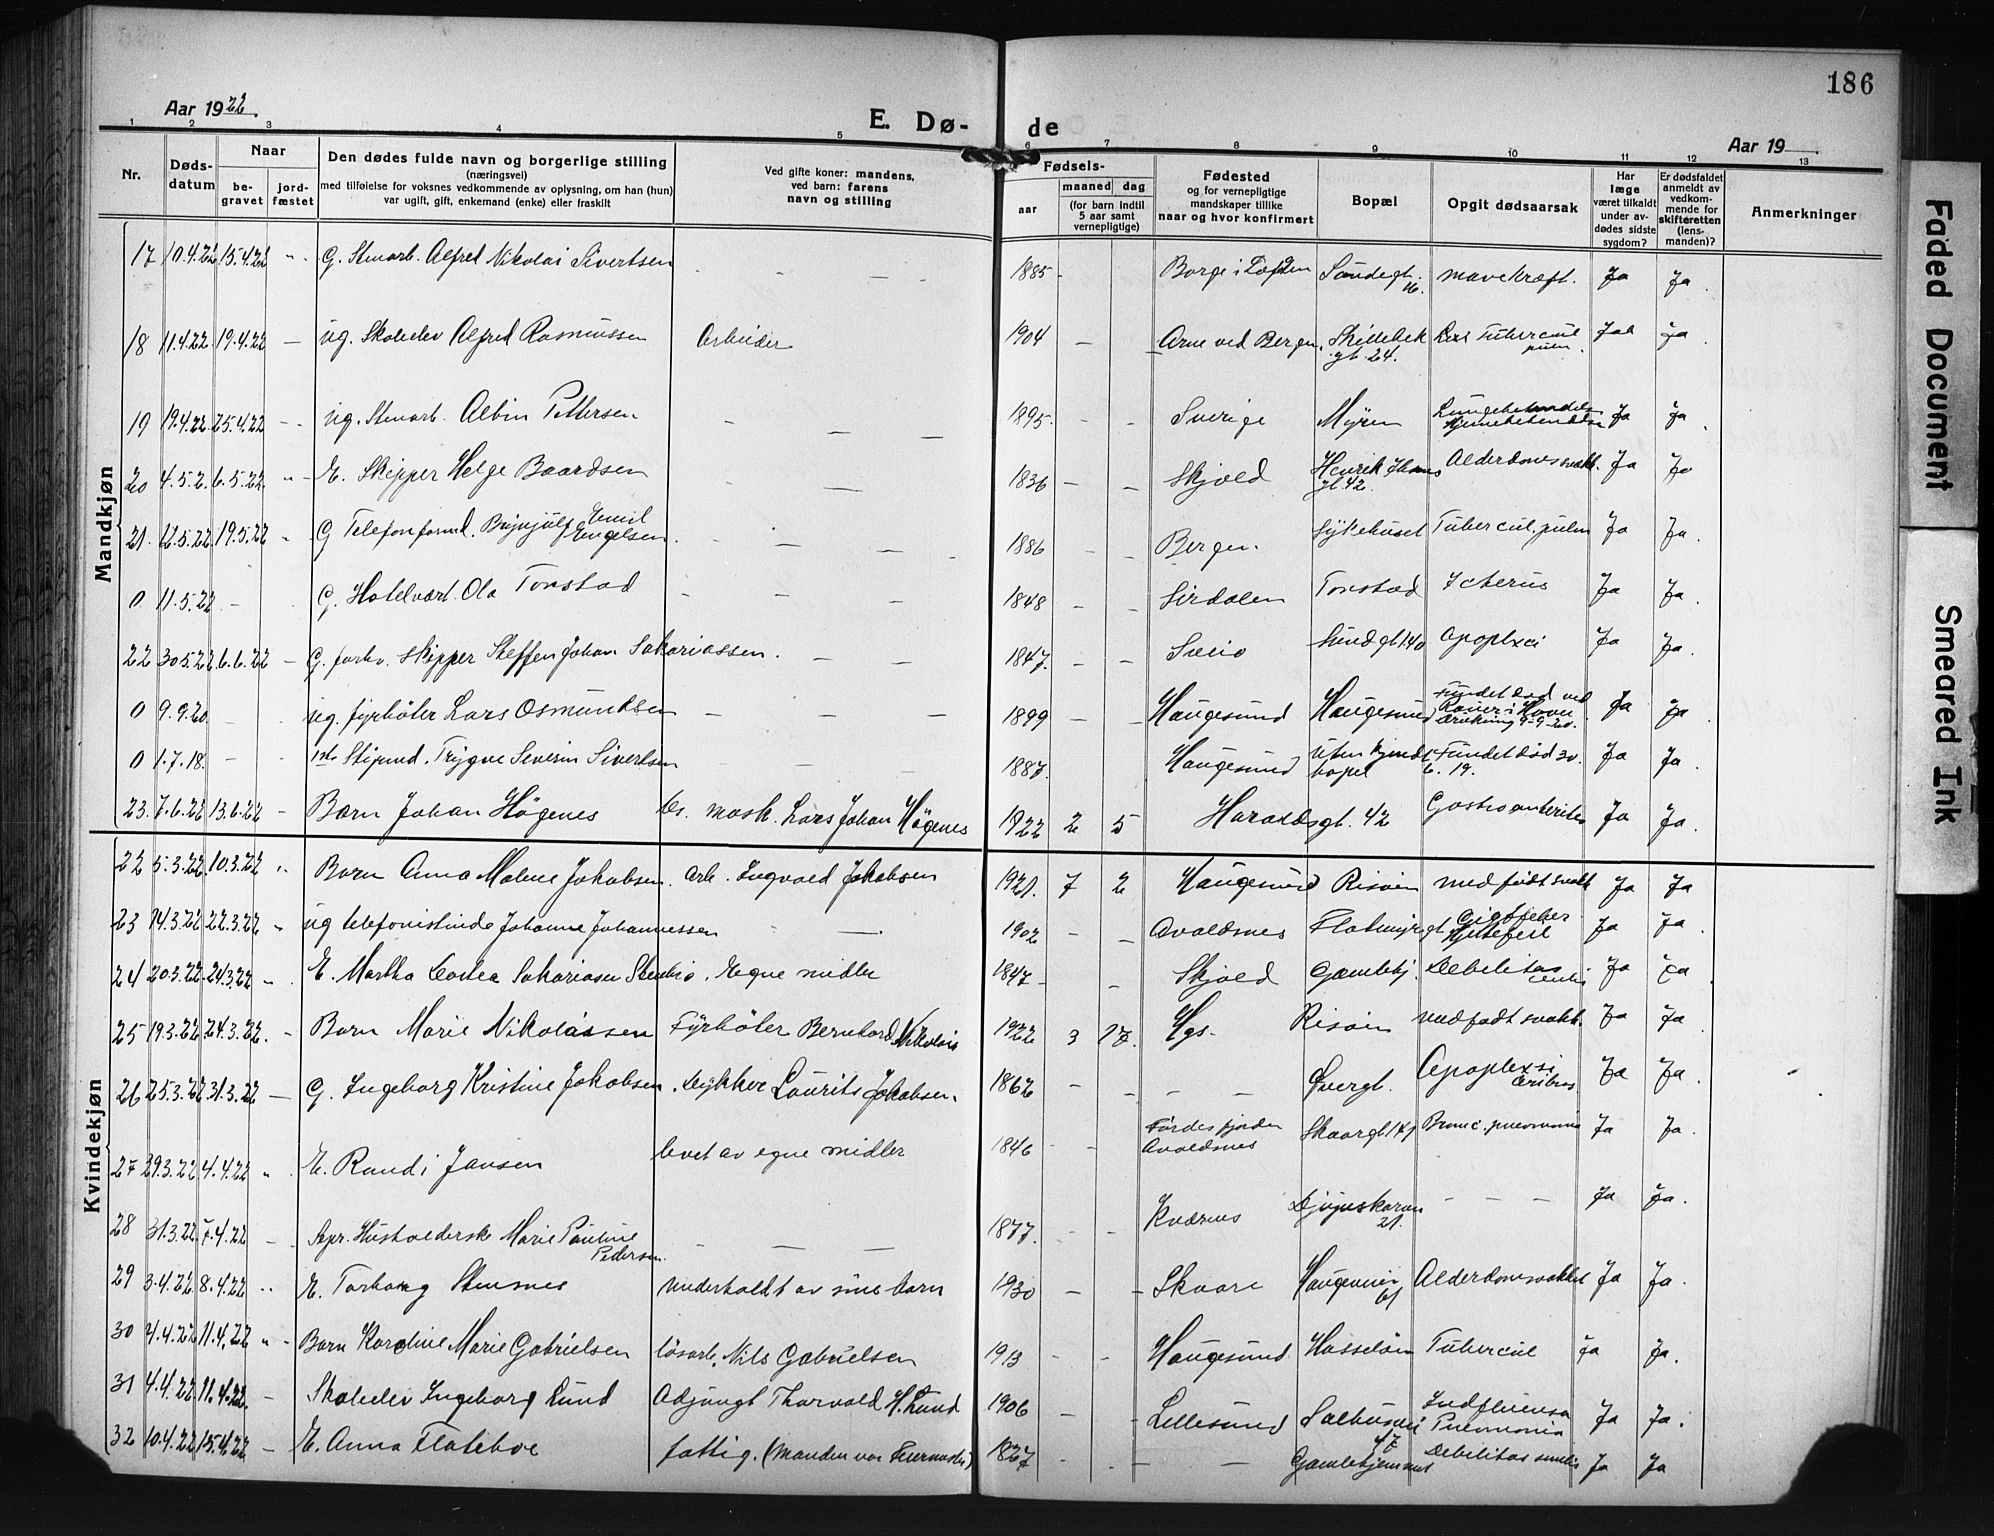 186
Aar 1922.
E. Dø-
de
Aar 19
1 2 3 4 5 6 7 8 9 10 11 12 13
Nr.
Døds-
datum
Naar
be-
gravet
jord-
fæstet
Den dødes fulde navn og borgerlige stilling
(næringsvei)
med tilføielse for voksnes vedkommende av oplysning, om han (hun)
var ugift, gift, enkemand (enke) eller fraskilt
Ved gifte koner: mandens,
ved barn: farens
navn og stilling
Fødsels-
aar
maaned dag
(for barn indtil
5 aar samt
vernepligtige)
Fødested
og for vernepligtige
mandskaper tillike
naar og hvor konfirmert
Bopæl
Opgit dødsaarsak
Har
læge
været tilkaldt
under av-
dødes sidste
sygdom?
Er dødsfaldet
anmeldt av
vedkom-
mende for
skifteretten
(lens-
manden)?
Anmerkninger
Mandkjøn
17 10.4.22 15.4.22 G. Stenarb. Alfred Nikolai Sivertsen 1885 Borge i Lofoten Sundegt. 16. mavekræft. Ja Ja.
18 11.4.22. 19.4.22 — ug. Skoleelev Alfred Rasmussen Arbeider 1904 — Arne ved Bergen. Skillebekgt. 24. Tubercul pulm. Ja Ja
19 19.4.22. 25.4.22 ug. Stenarb. Albin Pettersen 1895. Sverige Myren Ja Ja
20 4.5.2. 6.5.22. E. Skipper Helge Baardsen 1836 Skjold Henrik Ibsens gt. 42. Alderdomssvakh. Ja Ja
21. 12.5.22. 19.5.22 G Telefonformd. Brynjulf Emil Engelsen. 1886 Bergen. Sykehuset Tubercul. pulm Ja Ja.
0 11.5.22 — G. Hotelvært Ola Tonstad 1848 Sirdalen Tonstad Icterus Ja Ja.
22 30.5.22 6.6.22 — G. forhv. skipper Steffen Johan Sakariassen. 1847. Sveio Sundgt. 40 Apoplexi Ja Ja.
0 9.9.20. ug. fyrbøter Lars Osmundsen 1899 Haugesund Haugesund Fundet død ved Røvær i Havn drukning 9-9-20. Ja Ja
0 1.7.18. Styrmd. Trygve Severin Sivertsen 1887. Haugesund Uten kjendt bopel Fundet død 30. 6. 19. Ja Ja.
23. 7.6.22 13.6.22 — Barn Johan Høgenes mask. Lars Johan Høgenes 1922 2 5 Haraldsgt. 42 Gastroenterites Ja Ja.
Kvindekjøn
22 5.3.22. 10.3.22 Barn Anna Malene Jakobsen. Arb. Ingvald Jakobsen 1921. 7 2 Haugesund Risøen medfødt svakh Ja Ja
23 14.3.22 22.3.22 ug telefonistinde Johanne Johannessen — 1902 Avaldsnes Flotmyrgt Gigtfeber Hjertefeil Ja Ja.
24 20.3.22 24.3.22 E. Martha Sakariasen . Egne midler 1847 Skjold Gamlehj. Debelitas Ja Ja
25 19.3.22 24.3.22. Barn Marie Nikolaissen Fyrbøter Bernhard Nikolais 1922 3 17. Hgs. Risøen medfødt svakh. Ja Ja
26 25.3.22 31.3.22 — G. Ingeborg Kristine Jakobsen. Dykker Laurits Jakobsen. 1862 Apoplexsi Ja Ja.
27 29.3.22 4.4.22 E. Randi Jansen levet av egne midler 1846 Førdesfjorden Avaldsnes Skaaregt Bronc. pneomonia Ja Ja.
28 31.3.22 7.4.22 Husholderske Marie Pauline Pedersen. 1877. Kværnes Djupaskaren 21. Ja Ja.
29 3.4.22 8.4.22 E. Torborg Stensnes underholdt av sine barn 1930 Skaare Haugeveien 61 Alderdomssvakhet Ja Ja.
30 4.4.22 11.4.22 Barn Karoline Marie Gabrielsen løsarb. Nils Gabrielsen 1913 Haugesund Hasseløen Tubercul Ja Ja.
31 4.4.22 11.4.22. — Skoleelev Ingeborg Lund Adjungt Thorvald H. Lund 1906 Lillesund Salhusvei 47 Indfluensa Pneomonia Ja Ja.
32 10.4.22 15.4.22 — E. Anna Flatebøe fattig. (manden var Feiermester) 1827 Gamlehjemmet Debelitas senelis Ja Ja
Faded Document
Smeared Ink